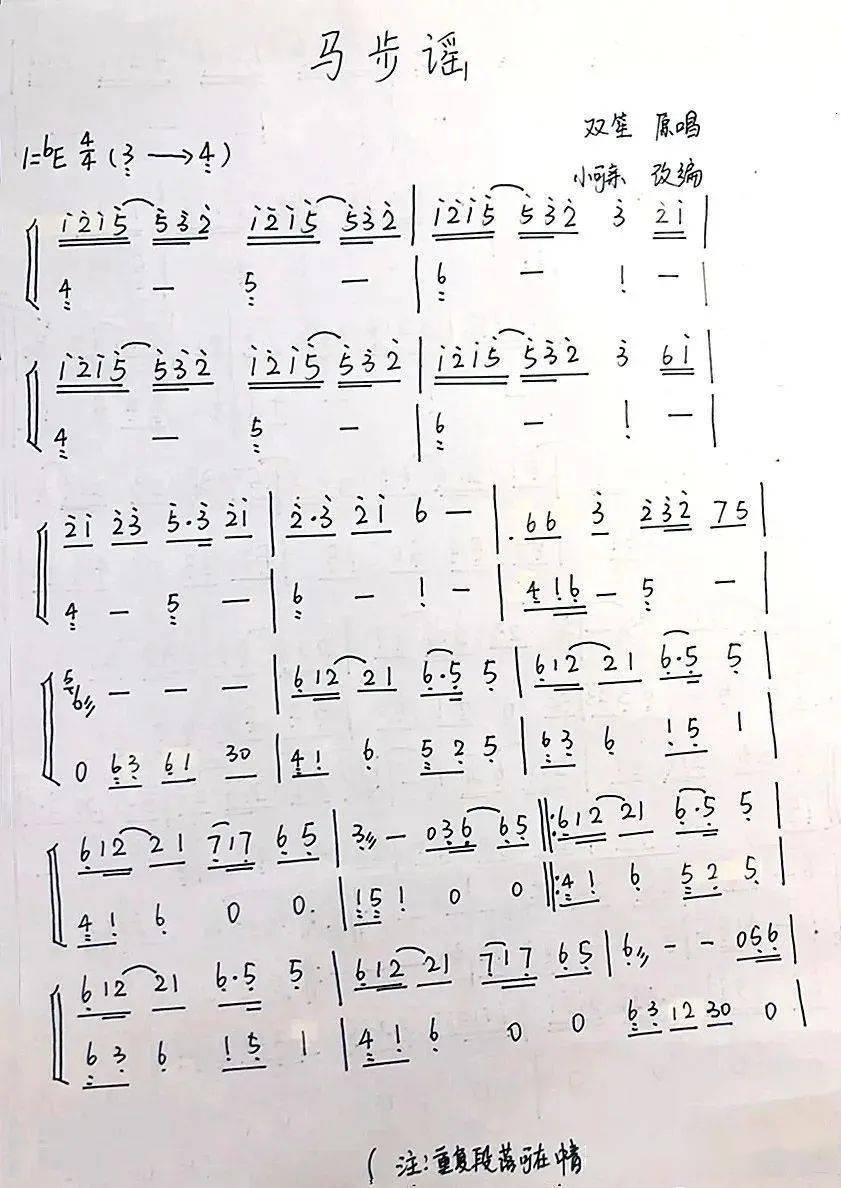 马步谣
双笙 原唱
1=ᵇE 4/4 (3̤ ⟶ 4̤)
小可亲 改编
i̇2̇i̇5̇ 5̇3̇2̇ i̇2̇i̇5̇ 5̇3̇2̇ | i̇2̇i̇5̇ 5̇3̇2̇ 3̇ 2̇i̇ |
4̤ — 5̤ — | 6̤ — 1̣ — |
i̇2̇i̇5̇ 5̇3̇2̇ i̇2̇i̇5̇ 5̇3̇2̇ | i̇2̇i̇5̇ 5̇3̇2̇ 3̇ 6i̇ |
4̤ — 5̤ — | 6̤ — 1̣ — |
2̇i̇ 2̇3̇ 5̇·3̇ 2̇i̇ | 2̇·3̇ 2̇i̇ 6 — | .66 3̇ 2̇3̇2̇ 75 |
4̤ — 5̤ — | 6̤ — 1̣ — | 4̤1̣6̣ — 5̤ — |
5̣6 — — — | 6̣12 21 6̣·5̣ 5̣ | 6̣12 21 6̣·5̣ 5̣ |
0 6̤3̣ 6̣1 30 | 4̤1̣ 6̣ 5̤2̣ 5̣ | 6̤3̣ 6̣ 1̣5̣ 1 |
6̣12 21 7̣17̣ 6̣5̣ | 3̣ — 03̣6̣ 6̣5̣ ‖: 6̣12 21 6̣·5̣ 5̣ |
4̤1̣ 6̣ 0 0. | 1̤5̤ 1̣ 0 0 ‖: 4̤1̣ 6̣ 5̤2̣ 5̣ |
6̣12 21 6̣·5̣ 5̣ | 6̣12 21 7̣17̣ 6̣5̣ | 6̣ — — 05̣6̣ |
6̤3̣ 6̣ 1̣5̣ 1 | 4̤1̣ 6̣ 0 0 6̤3̣ 12 30 0 |
( 注:重复段落可在中